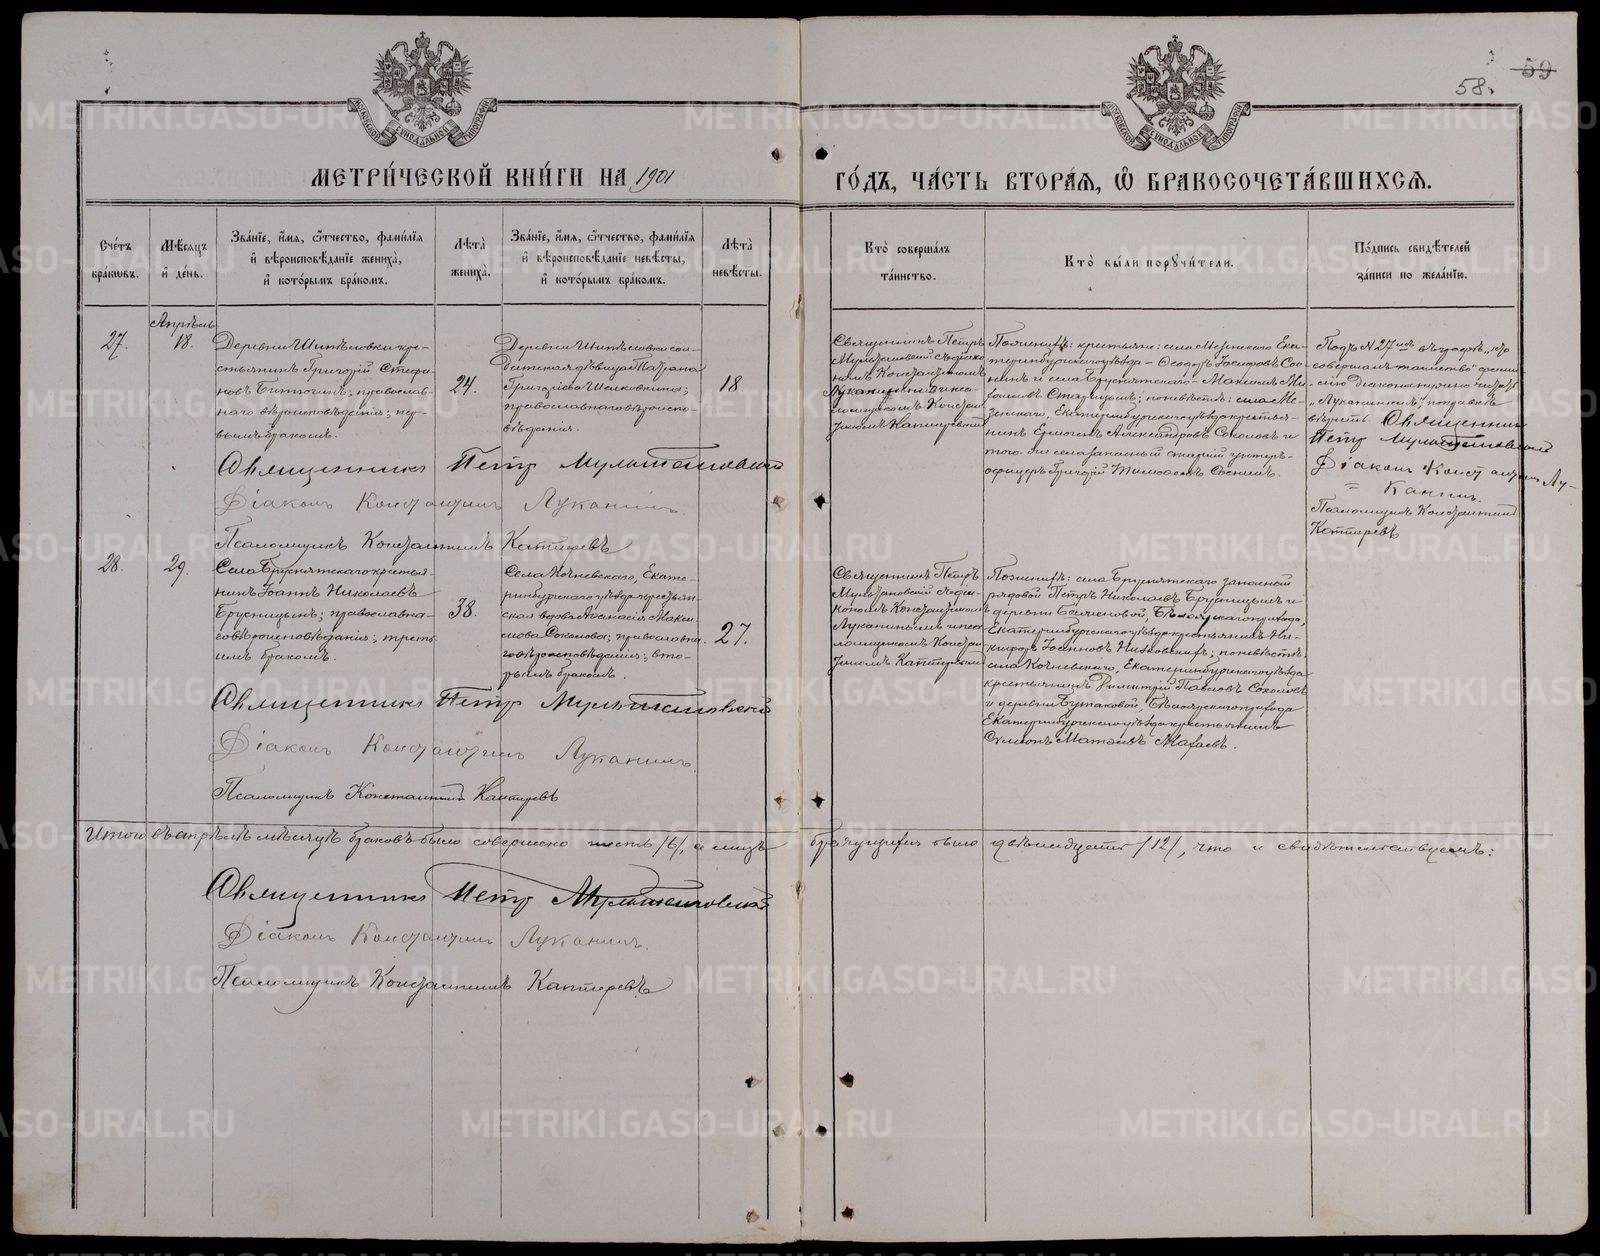 58.
59
МЕТРИ́ЧЕСКОЙ КНИ́ГИ НА 1901
ГО́ДЪ, ЧА́СТЬ ВТОРА́Я, Ѡ҆ БРАКОСОЧЕТА́ВШИХСЯ.
Сче́тъ бра́ковъ.
Мѣ́сяцъ и҆ де́нь.
Зва́нїе, и҆́мя, ѻ҆́тчество, фами́лїя
и҆ вѣроисповѣ́данїе жениха̀,
и҆ кото́рымъ бра́комъ.
Лѣта̀ жениха̀.
Зва́нїе, и҆́мя, ѻ҆́тчество, фами́лїя
и҆ вѣроисповѣ́данїе невѣ́сты,
и҆ кото́рымъ бра́комъ.
Лѣта̀ невѣ́сты.
Кто̀ соверша́лъ
та́инство.
Кто̀ бы́ли порꙋчи́тели.
По́дпись свидѣ́телей
за́писи по жела́нїю.
27.
Апрѣль
18.
Деревни Шипѣловки кре-
стьянинъ Григорій Стефа-
новъ православ-
наго вѣроисповѣданія; пер-
вымъ бракомъ.
24.
Деревни Шипѣловки сол-
датская дѣвица
Григорьева
православнаго вѣроиспо-
вѣданія.
18
Священникъ Петръ
съ діако-
номъ Константиномъ
Луканинымъ и пса-
ломщикомъ Констан-
тиномъ
По женихѣ: крестьяне: села Мезенскаго Ека-
теринбургскаго уѣзда - Ѳеодоръ Іосифовъ Сос-
нинъ и села Бруснятскаго - Максимъ
по невѣстѣ: села Ме-
зенскаго, Екатеринбургскаго уѣзда крестья-
нинъ Ермогенъ Александровъ Соколовъ и
того же села запасный старшій унтеръ-
офицеръ Григорій Тимоѳеевъ Соснинъ.
Подъ № 27мъ въ графѣ „кто
совершалъ таинство" фами-
лію діакона нужно читать
„Луканинымъ", поправкѣ
вѣрить. Священникъ
Петръ
Діаконъ Константинъ Лу-
= канинъ.
Псаломщикъ Константинъ
Священникъ Петръ
Діаконъ Константинъ Луканинъ.
Псаломщикъ Константинъ
28.
29.
Села Бруснятскаго крестья-
нинъ Іоаннъ Николаевъ
Брусницынъ; православна-
го вѣроисповѣданія; треть-
имъ бракомъ.
38.
Села Кочневскаго, Екате-
ринбургскаго уѣзда крестьян-
ская вдова Аѳанасія Макси-
мова Соколова; православна-
го вѣроисповѣданія; вто-
рымъ бракомъ.
27.
Священникъ Петръ
съ діа-
кономъ Константиномъ
Луканинымъ и пса-
ломщикомъ Констан-
тиномъ
По женихѣ: села Бруснятскаго запасный
рядовой Петръ Николаевъ Брусницынъ и
деревни прихода,
Екатеринбургскаго уѣзда крестьянинъ Ни-
кифоръ Іоанновъ по невѣстѣ:
села Кочневскаго, Екатеринбургскаго уѣзда
крестьянинъ Димитрій Павловъ Соколовъ
и деревни Бутаковой, прихода
Екатеринбургскаго уѣзда крестьянинъ
Симеонъ
Священникъ Петръ
Діаконъ Константинъ Луканинъ.
Псаломщикъ Константинъ
Итого въ апрѣлѣ мѣсяцѣ браковъ было совершено шесть /6/, а лицъ брачущихся было двѣнадцать /12/, что и свидѣтельствуемъ:
Священникъ Петръ
Діаконъ Константинъ Луканинъ.
Псаломщикъ Константинъ
METRIKI.GASO-URAL.RU